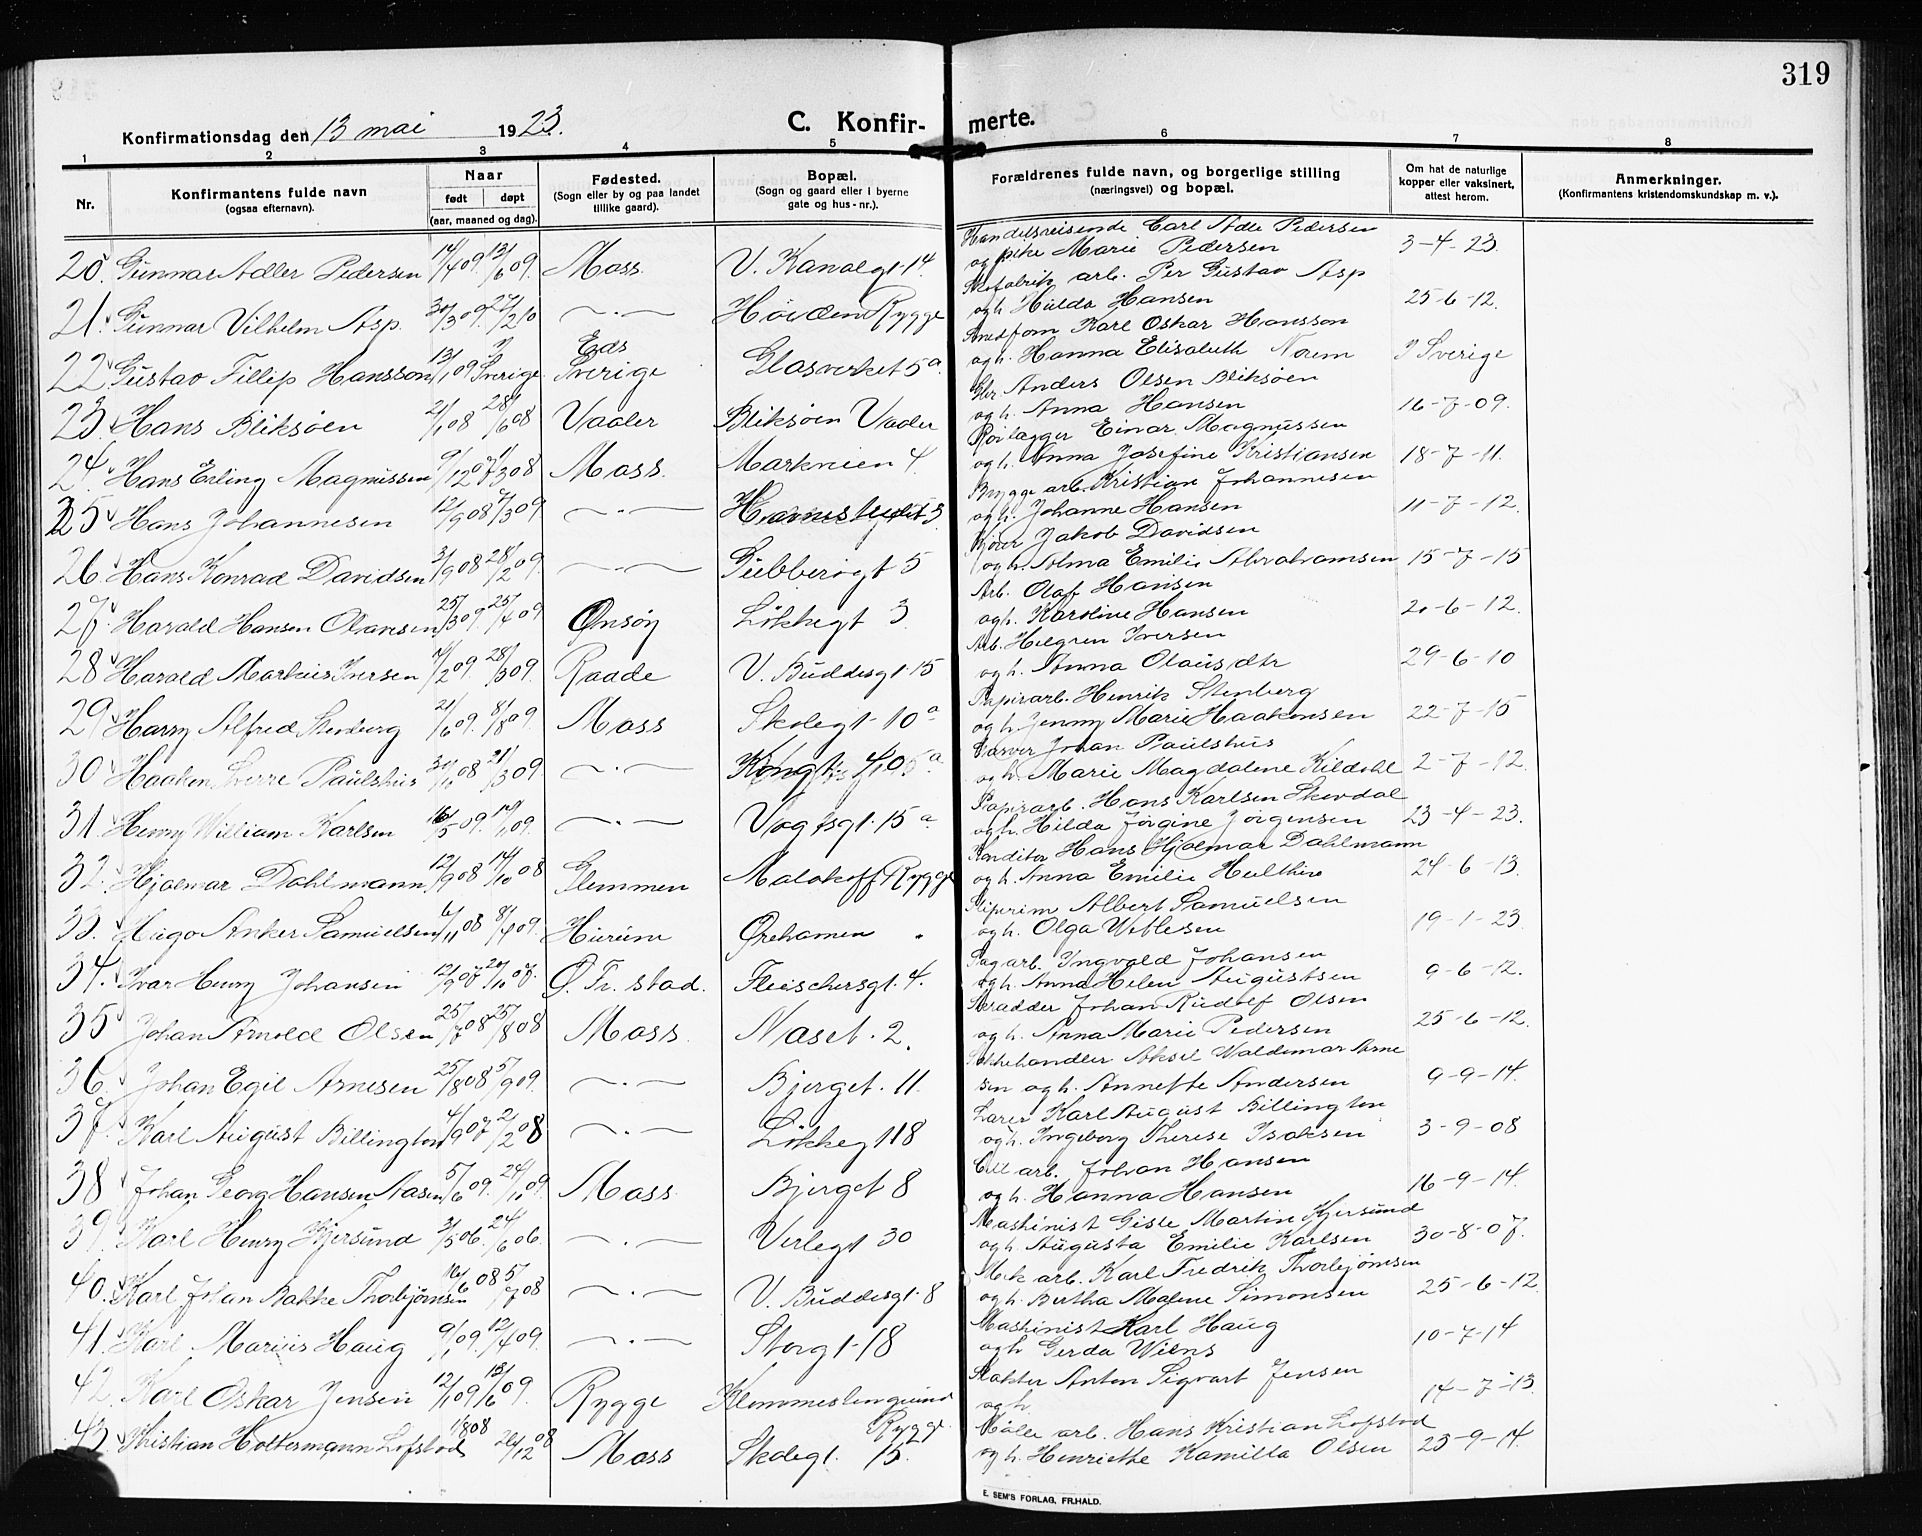 319
Konfirmationsdag den 13 mai 1923.
C. Konfir- merte.
1 2 3 4 5 6 7 8
Nr.
Konfirmantens fulde navn
(ogsaa efternavn).
Naar
født døpt
(aar, maaned og dag).
Fødested.
(Sogn eller by og paa landet
tillike gaard).
Bopæl.
(Sogn og gaard eller i byerne
gate og hus-nr.).
Forældrenes fulde navn, og borgerlige stilling
(næringsvei) og bopæl.
Om hat de naturlige
kopper eller vaksinert,
attest herom.
Anmerkninger.
(Konfirmantens kristendomskundskap m. v.).
Handelsreisende Carl Adle Pedersen
20. Gunnar Adler Pedersen 14/4 09. 13/6 09. Moss. V. Kanalgt. 14. og pike Marie Pedersen 3-4-23
Skofabrik arb. Per Gustav Asp
21. Gunnar Vilhelm Asp. 30/3 09. 27/2 10 —.— Høiden Rygge og h. Hulda Hansen 25-6-12.
Karl Oskar Hansson
22. Gustav Fillip Hansson 13/1 09 I Sverige. Eds Sverige Glasverket 5a. og h. Hanna Elisabeth Norem I Sverige
Anders Olsen Bliksøen
23. Hans Bliksøen 21/1 08 28/6 08 Vaaler Bliksøen Vaaler og h. Anna Hansen 16-7-09.
Rørlægger Einar Magnussen
24. Hans Erling Magnussen 9/12 07 1/3 08 Moss. Markveien 4. og h. Anna Josefine Kristiansen 18-7-11.
Brygge arb. Kristian Johannesen
25. Hans Johannesen 12/9 08 7/3 09 —.— og h. Johanne Hansen 11-7-12.
Kjører Jakob Davidsen
26. Hans Konrad Davidsen 3/9 08 28/2 09. —.— Gubberogt 5 og h. Alma Emilie Abrahamsen 15-7-15
Arb. Olaf Hansen
27. Harald Hansen Olavsen 25/3 09. 25/4 09 Onsøy Løkkegt 3 og h. Karoline Hansen 20-6-12.
Arb. Helgren Iversen
28 Harald Markus Iversen 7/2 09. 28/3 09. Raade V. Buddesgt. 15 og h. Anna Olausdtr 29-6-10
Papirarb. Henrik Stenberg
29 Harry Alfred Stenberg 21/6 09. 8/8 09. Moss Skolegt. 10a og h. Jenny Marie Haakonsen 22-7-15
Johan Paulshus
30 Haakon Sverre Paulshus 30/10 08 21/3 09 —.— og h. Marie Magdalene Kildahl 2-7-12.
Papirarb. Hans Karlsen Skovdal
31 Henry William Karlsen 16/5 09. 19/1 09. —.— Vogtsgt. 15a og h. Hilda Jørgine Jørgensen 23-4-23.
Konditor Hans Hjalmar Dahlmann
32. Hjalmar Dahlmann 12/9 08 14/10 08 Glemmen Malakoff Rygge og h. Anna Emilie Hulthin 24-6-13.
Albert Samuelsen
33. Hugo Anker Samuelsen 6/11 08 8/4 09. Hurum Ørehamen og h. Olga Wetlesen 19-1-23
Sagarb. Ingvald Johansen
34. Ivar Henry Johansen 12/9 07 27/10 07. Ø. Fr. stad. Fleischersgt. 4. og h. Anna Helen Augustsen 9-6-12.
Skradder Johan Rudolf Olsen
35 Johan Arnold Olsen 25/7 08 25/8 08 Moss Naset. 2. og h. Anna Marie Pedersen 25-6-12.
Sækkehandler Aksel Waldemar Arne
36. Johan Egil Arnesen 25/8 08 5/9 09. —.— Bjerget. 11. sen og h. Annette Andersen 9-9-14.
Karl August Billington
37. Karl August Billington 4/9 07 2/2 08 —.— Løkkegt 18 og h. Ingeborg Therese Isaksen 3-9-08
Cell arb. Johan Hansen
38 Johan Georg Hansen Aasen 5/6 09. 24/10 09. Moss Bjerget 8 og h. Hanna Hansen 16-9-14.
Maskinist Gisle Martin Kjersund
39. Karl Henry Kjersund 3/5 06. 24/6 06. —.— Verlegt 30 og h. Augusta Emilie Karlsen 30-8-07.
Mek arb. Karl Fredrik Thorbjørnsen
40. Karl Johan Bakke Thorbjørnsen 16/6 08 5/7 08 —.— V. Buddesgt. 8 og h. Bertha Malene Simonsen 25-6-12
Maskinist Karl Haug
41. Karl Marius Haug 9/1 09. 12/4 09. —.— Storgt. 18 og h Gerda Wiens 10-7-14
Slakter Anton Sigvart Jensen
42. Karl Oskar Jensen 12/1 09 13/6 09. Rygge Klommestengrund Rygge og h. 14-7-13
Mølle arb. Hans Kristian Lofstad
43. Kristian Holtermann Lofstad 1/8 08 26/12 08 Moss Skolegt. 15. og h. Henriette Kamilla Olsen 23-9-14.
E. SEM'S FORLAG, FR.HALD.